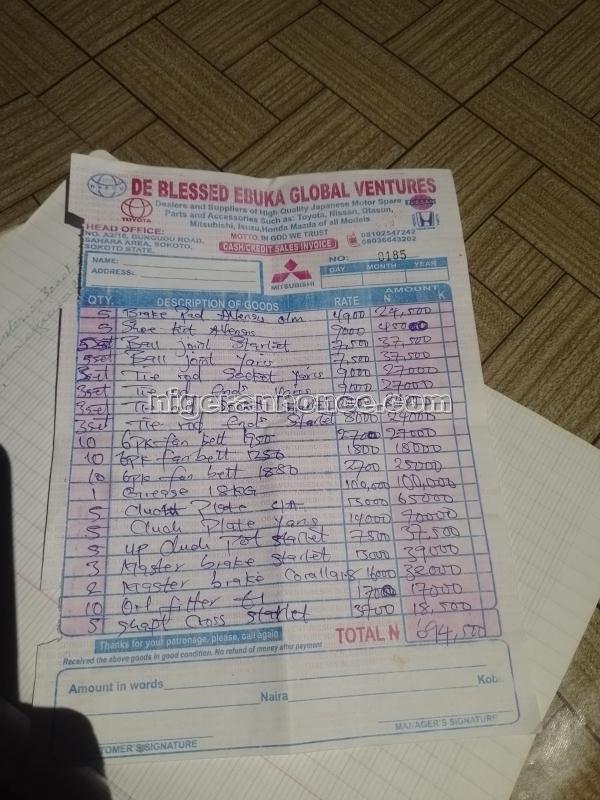 DE BLESSED EBUKA GLOBAL VENTURES
TOYOTA
Dealers and Suppliers of High Quality Japanese Motor Spare
Parts and Accessories Such as: Toyota, Nissan, Datsun,
Mitsubishi, Isuzu, Honda Mazda of all Models
MOTTO: IN GOD WE TRUST
08102547242
08036643202
HEAD OFFICE:
NO. A2/16, BUNGUDU ROAD,
SAHARA AREA, SOKOTO,
SOKOTO STATE.
CASH/CREDIT SALES INVOICE
NAME:
ADDRESS:
MITSUBISHI
NO: 0185
DAY MONTH YEAR
QTY. DESCRIPTION OF GOODS RATE AMOUNT
N K
5 Brake Pad Avensis 4900 24,500
5 Shoe Avensis 9000 45000
5set Ball joint Starlet 7,500 37,500
5set Ball joint Yaris 7,500 37,500
3set Tie rod Socket Yaris 9000 27000
3set Tie Ends 9000 27000
3set Tie
3set Tie rod Ends Starlet 8000 24000
10 6pk fan belt 950 2700 27000
10 6pk fan belt 1250 1800 18000
10 6pk fan belt 1880 2700 25000
1 Grease 18KG 100,000 100,000
5 Clutch Plate 13000 65000
5 Clutch Plate Yaris 14000 70000
5 UP Clutch Pot Starlet 7500 37,500
3 Master brake Starlet 13000 39,000
2 Master brake Corolla 16000 32000
10 Oil filter 1700 17000
5 Shapt Cross Starlet 3700 18,500
nigerannonce.com
Thanks for your patronage, please, call again
TOTAL N 694,500
Received the above goods in good condition. No refund of money after payment
Amount in words
Naira Kob
TOMER'S SIGNATURE
MANAGER'S SIGNATURE